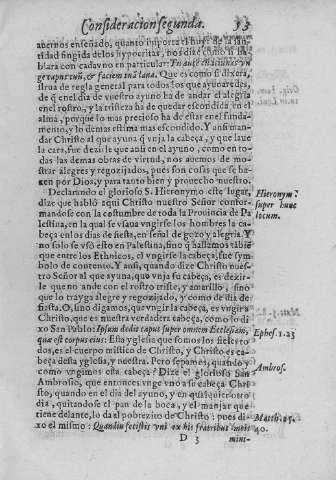 Consideracion segunda. 53
auernos enseñado, quanto importa el huyr de la san-
tidad fingida de los hypocritas, nos dize como si ha-
blara con cada vno en particular:
Que es como si dixera,
sirua de regla general para todos los que ayunaredes,
de q̃ en el dia de vuestro ayuno ha de andar el alegria
en el rostro, y la tristeza ha de quedar escondida en el
alma, porque lo mas precioso ha de estar en el funda-
mento, y lo demas estima mas escondido. Y ansi man-
dar Christo al que ayuna q̃ vnja la cabeça, y que laue
la cara, fue dezirle que ansi en el ayuno, como en to-
das las demas obras de virtud, nos auemos de mo-
strar alegres y regozijados, pues son cosas que se ha-
zen por Dios, y para tanto bien y prouecho nuestro.
Declarando el glorioso S. Hieronymo este lugar,
dize que habló aqui Christo nuestro Señor confor-
mandose con la costumbre de toda la Prouincia de Pa
lestina, en la qual se vsaua vngirse los hombres la ca-
beça en los dias de fiesta, en señal de gozo y alegria. Y
no solo se vsó esto en Palestina, sino q̃ hallamos tãbiẽ
que entre los Ethnicos, el vngirse la cabeça, fue sym-
bolo de contento. Y ansi, quando dize Christo nue-
stro Señor al que ayuna, que vnja su cabeça, es dezir-
le que no ande con el rostro triste, y amarillo, sino
que lo trayga alegre y regozijado, y como de dia de
fiesta. O, sino digamos, que vngir la cabeça, es vngir a
Christo, que es nuestra verdadera cabeça, como lo di-
xo san Pablo: Ipsum dedit caput super omnem Ecclesiam,
quæ est corpus eius: Esta yglesia que somos los fieles to-
dos, es el cuerpo mistico de Christo, y Christo es ca-
beça desta yglesia, y nuestra. Pero sepamos, quando y
como vngimos esta cabeça? Dize el glorioso San
Ambrosio, que entonces vnge vno a su cabeça Chri-
sto, quando en el dia del ayuno, y en qualquier otro
dia, quitandose el pan de la boca, y el manjar que
tiene delante, lo da al pobrezito de Christo: pues di-
xo el mismo: Quandiu fecistis vni ex his fratribus meis
D 3 mini-
Hieronym?
super hunc
locum.
Ephes. 1. 23
Ambros.
Matth. 25.
40.